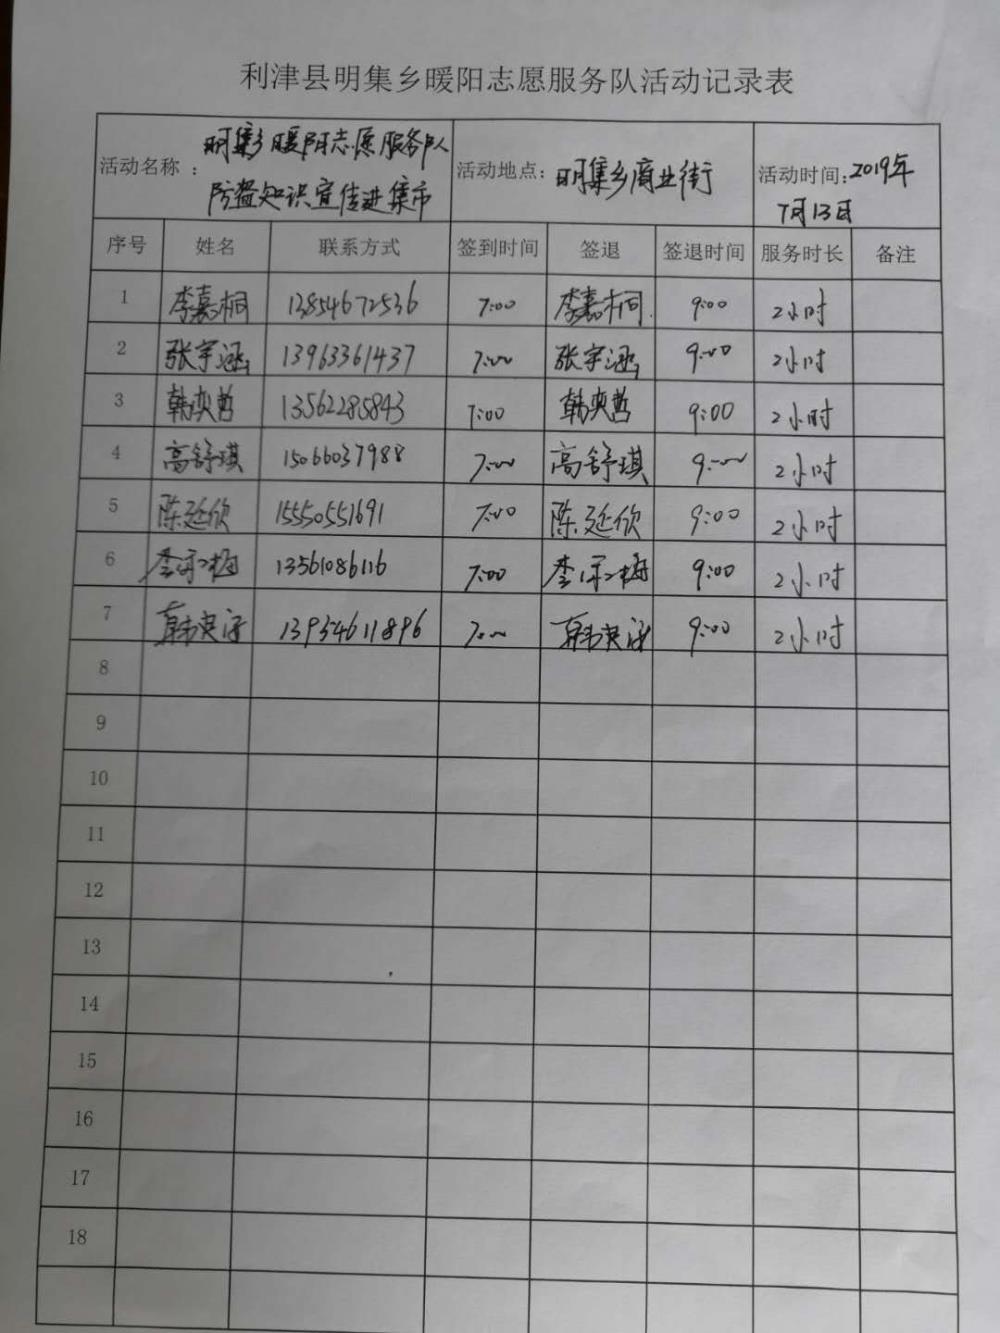 利津县明集乡暖阳志愿服务队活动记录表
活动名称： 明集乡暖阳志愿服务队 防盗知识宣传进集市 活动地点： 明集乡商业街 活动时间：2019年 7月13日
序号 姓名 联系方式 签到时间 签退 签退时间 服务时长 备注
1 李嘉桐 13854672536 7:00 李嘉桐 9:00 2小时
2 张宇涵 13963361437 7:00 张宇涵 9:00 2小时
3 韩奕哲 13562285843 7:00 韩奕哲 9:00 2小时
4 高舒琪 15066037988 7:00 高舒琪 9:00 2小时
5 陈延欣 15550551691 7:00 陈延欣 9:00 2小时
6 13561086116 7:00 9:00 2小时
7 13954611896 7:00 9:00 2小时
8
9
10
11
12
13
14
15
16
17
18